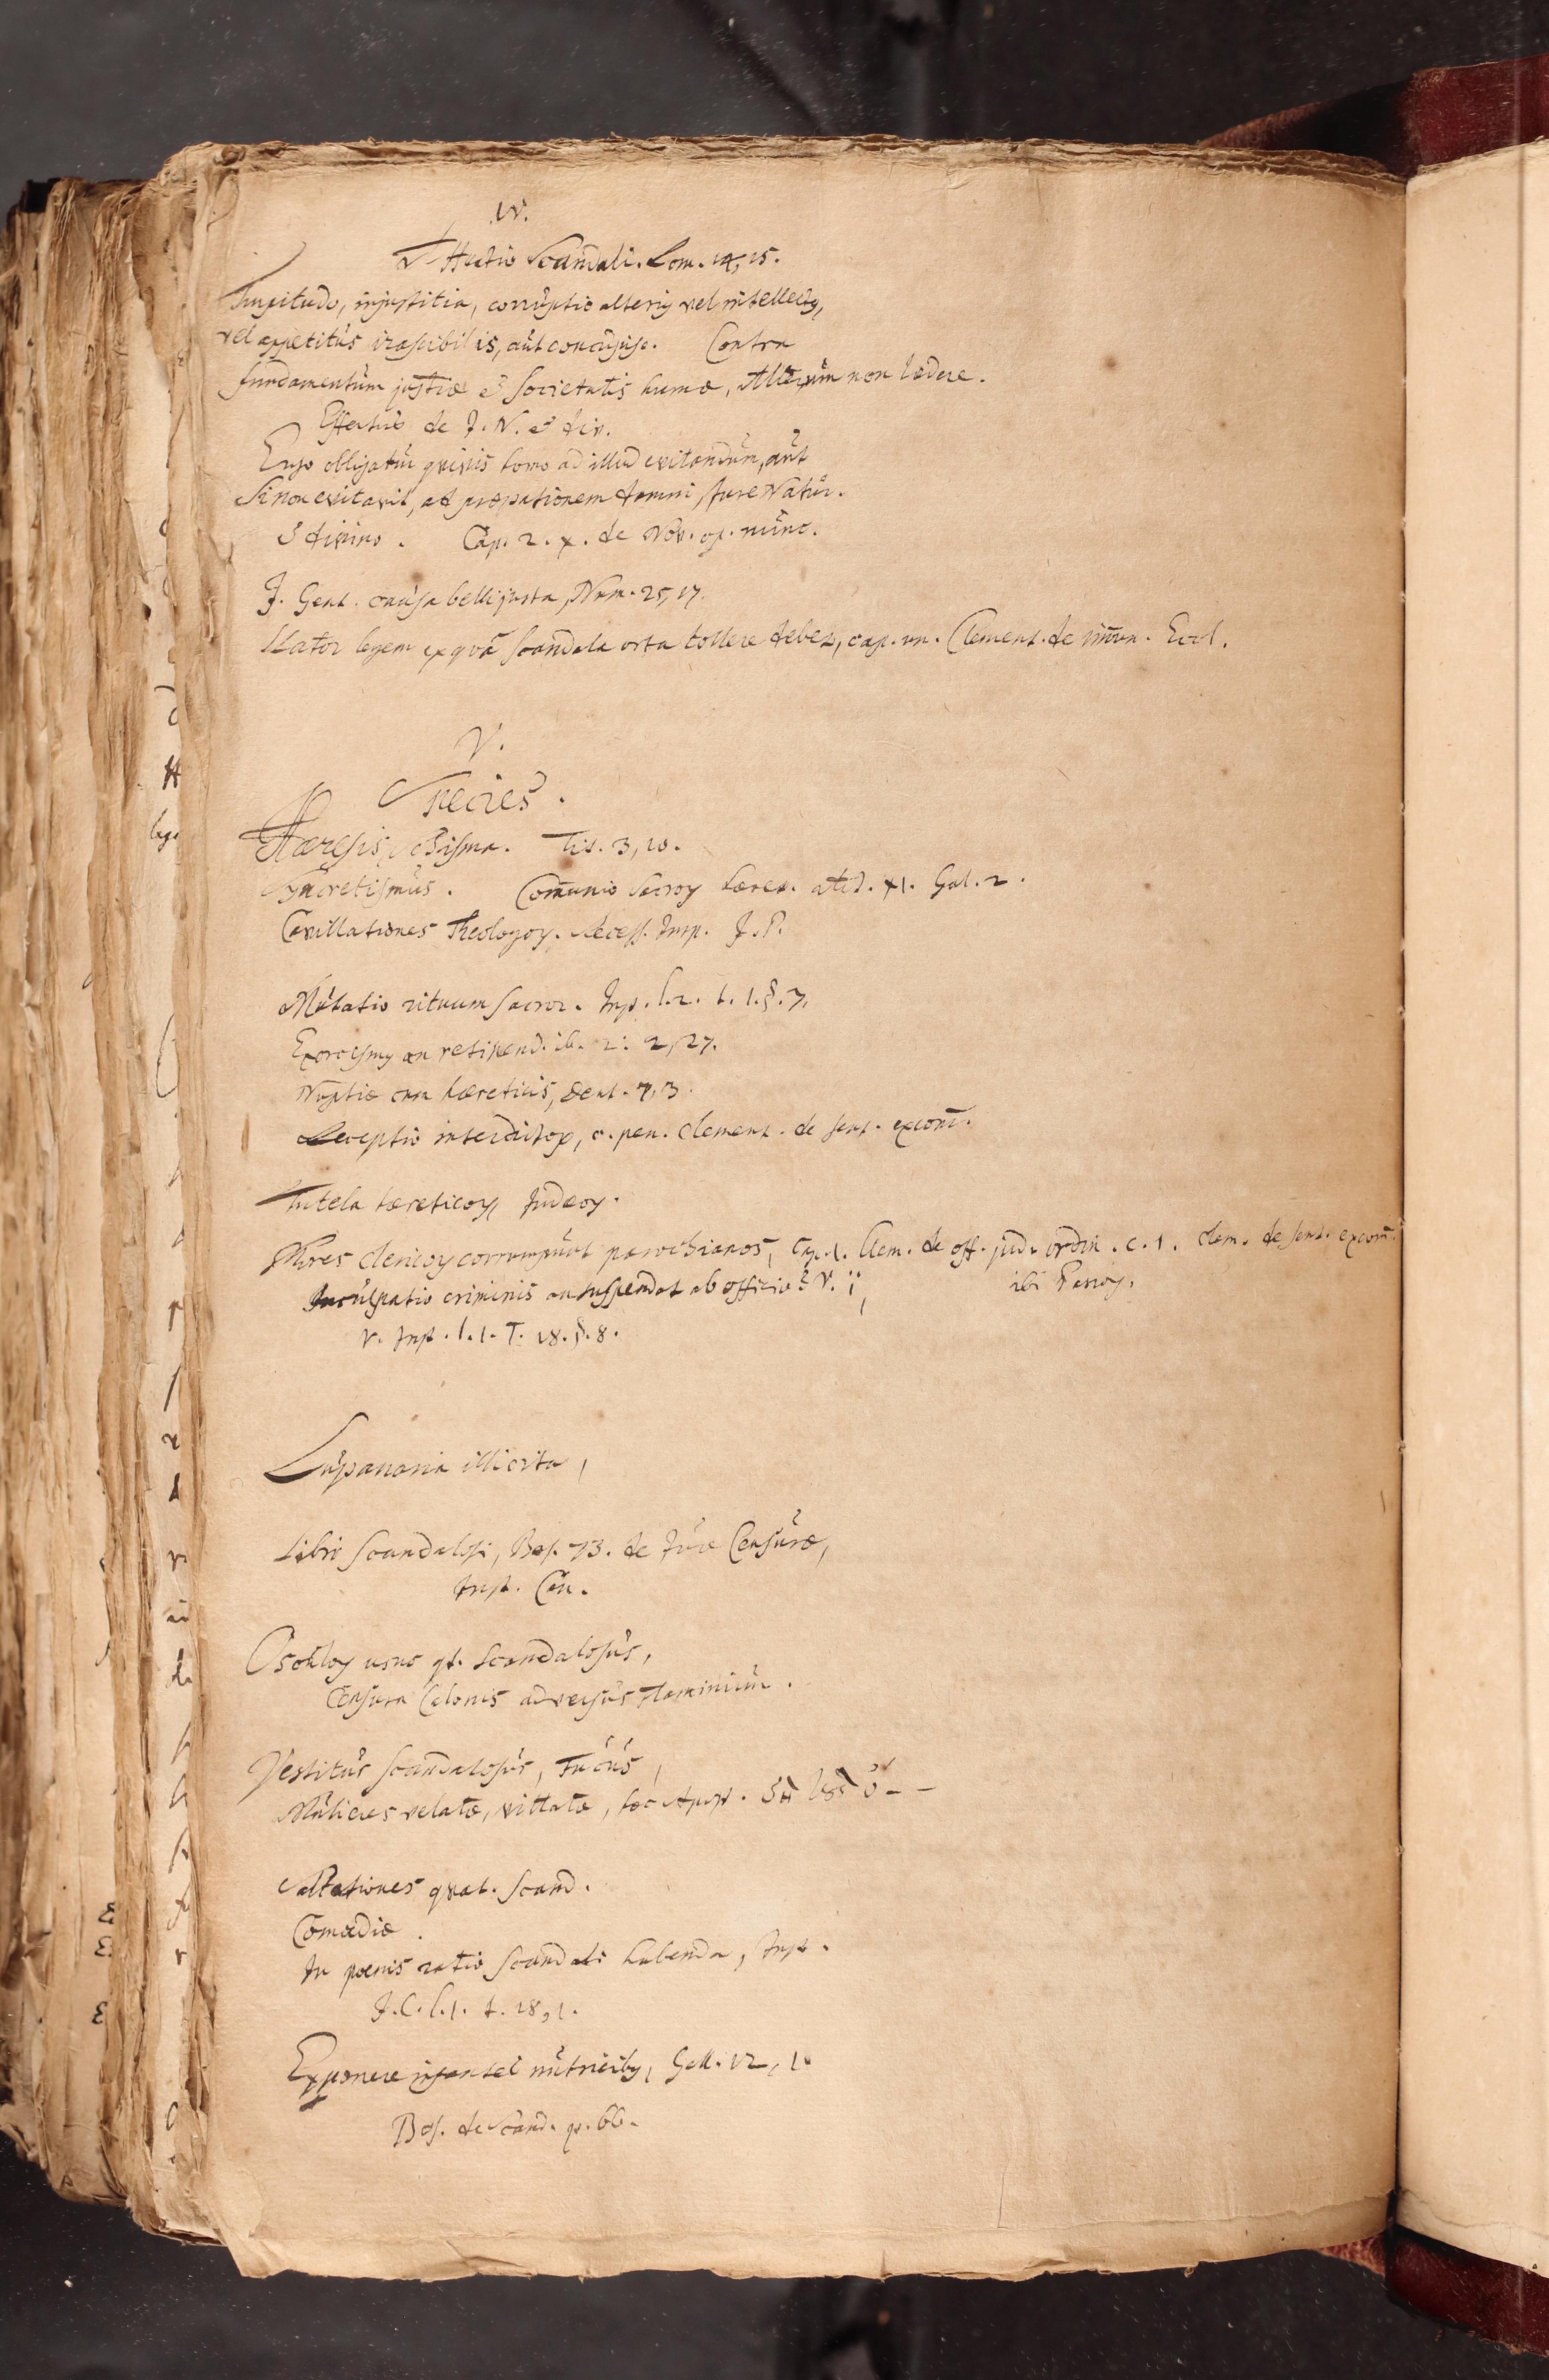 IV.
Scandali. Rom. 14, 15.
Turpitudo, injustitia, corruptio alterius vel intellectus,
vel appetitus irascibilis, aut concupisc. Contra
fundamentum justiae et societatis humae, alterum non laedere.
Effectus de J. N. et div.
Ergo obligatur quivis homo ad illud evitandum, aut
si non evitavit, ad reparationem damni, Jure Natur.
et divino. Cap. 2. X. de Nov. op. nunc.
J. Gent. causa belli justa, Num. 25, 17.
lator legem ex qua scandala orta tollere debet, cap. un. Clement. de immun. Eccl.
V.
Species.
Haeresis, Schisma. Tit. 3, 10.
Syncretismus. Communio sacror. haeret. Gal. 2.
Cavillationes Theologor. Recess. Imp. J. P.
Mutatio rituum sacror. Inst. l. 2. t. 1. §. 7,
Exorcismus an retinend. ib. 2: 2, 27.
Nuptiae cum haereticis, Deut. 7, 3.
Receptio interdictor, c. pen. Clement. de sent. excom.
Tutela haereticor, Judaeor.
Mores clericor corrumpunt parochianos, cap. 1. Clem. de off. jud. ordin. c. 1. clem. de sent. excom.
Inculpatio criminis an suspendat ab officio? V.
ibi
v. Inst. l. 1. T. 18. §. 8.
Lupanaria illicita,
Libri scandalosi, Bes. 73. de Jure Censurae,
Inst. Can.
Osculor usus qt. scandalosus,
Censura Catonis adversus Flaminium.
Vestitus scandalosus, Fucus,
Mulieres velatae, vittatae,
Saltationes quat. scand.
Comoediae.
In poenis ratio scandali habenda, Inst.
J. C. l. 1. t. 18, 1.
Exponere infantes nutricibus, Gell. 12, 1.
Bes. de Scand. p. 66.